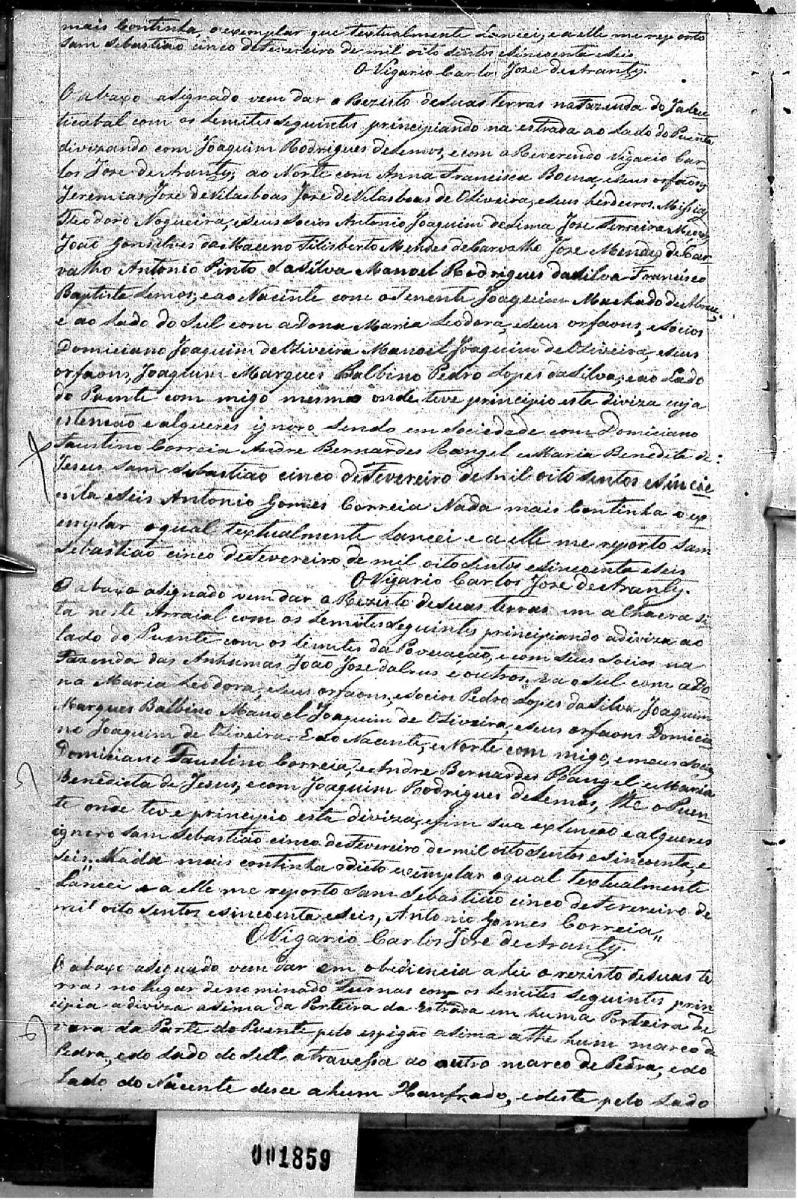 mais Continha, o exemplar que textualmente Lancei, e a elle me reporto
Sam Sebastião cinco de Fevereiro de mil oito sentos e sincoenta e seis
O Vigario Carlos José de
O abaxo asignado vem dar o Rezisto de suas terras na Fazenda do Jabou
ticabal com os Lemites Seguintes principiando na estrada ao Lado do Puente
divizando com Joaquim Rodrigues de Lemos, e com o Reverendo Vigario Car
los Jose de ao Norte com Anna Francisca Boena, e seus orfaons
Jeremias Jose de Vilasboas Jose de Vilasboas de Oliveira, e seus herdeiros
Theodoro Nogueira, e seus Socios Antonio Joaquim de Lima Jose Ferreira
João Gonsalves da Filisberto Mendes de Carvalho Jose Mendes de Car
valho Antonio Pinto da Silva Manoel Rodrigues da Silva Francisco
Baptista Lemos, e ao Nacente com o Tenente Joaquim Machado de
e ao Lado do Sul com a Dona Maria Leodora, e seus orfaons, e socios
Domiciano Joaquim de Oliveira Manoel Joaquim de Oliveira, e seus
orfaons, Joaquim Marques Balbino Pedro Lopes da Silva, e ao Lado
do Puente com migo mesmo onde teve principio esta diviza cuja
estencão e alqueres ignoro sendo em Sociedade com Domiciano
Faustino Correia Andre Bernardes Rangel e Maria Benedita de
Jesus Sam Sebastião cinco de Fevereiro de mil oito sentos e sincoe
nta e seis Antonio Gomes Correia Nada mais Continha o ex
emplar o qual textualmente Lancei e a elle me reporto Sam
Sebastião cinco de Fevereiro de mil oito sentos e sincoenta e seis
O Vigario Carlos Jose de
O abaxo asignado vem dar o Rezisto de suas terras em a Chacra si
ta neste Arraial com os Lemites Seguintes principiando a diviza ao
lado do Puente com os Lemites da Povoação, e com seus socios na
Fazenda das João Jose e outros. E a o sul com a Do
na Maria Leodora, e seus orfaons, e socios Pedro Lopes da Silva Joaquim
Marques Balbino Manoel Joaquim de Oliveira, e seus orfaons Domicia
no Joaquim de Oliveira. E do Nacente, e Norte com migo, e meus socios
Domiciano Faustino Correia, e Andre Bernardes Rangel e Maria
Benedicta de Jesus, e com Joaquim Rodrigues de Lemos, the o Puen
te onde teve principio esta diviza, e sua extencão e alqueres
ignoro Sam Sebastião cinco de Fevereiro de mil oito sentos e sincoenta, e
seis. Nada mais continha o dicto exemplar o qual textualmente
Lancei e a elle me reporto Sam Sebastião cinco de Fevereiro de
mil oito sentos e sincoenta e seis, Antonio Gomes Correia
O Vigario Carlos Jose de
O abaxo asignado vem dar em obediencia a Lei o rezisto de suas te
rras no Lugar denominado com os Lemites Seguintes prin
cipia a diviza asima da Porteira da Estrada em huma Porteira de
vara da Parte do Puente pelo espigão asima athe hum marco de
Pedra, e do Lado do Sul atravessa ao outro marco de Pedra, e do
Lado do Nacente desce a hum e deste pelo Lado
001859